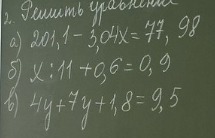 2. Решить уравнения
а) 201,1 - 3,04x = 77, 98
б) x : 11 + 0,6 = 0,9
в) 4y + 7y + 1,8 = 9,5